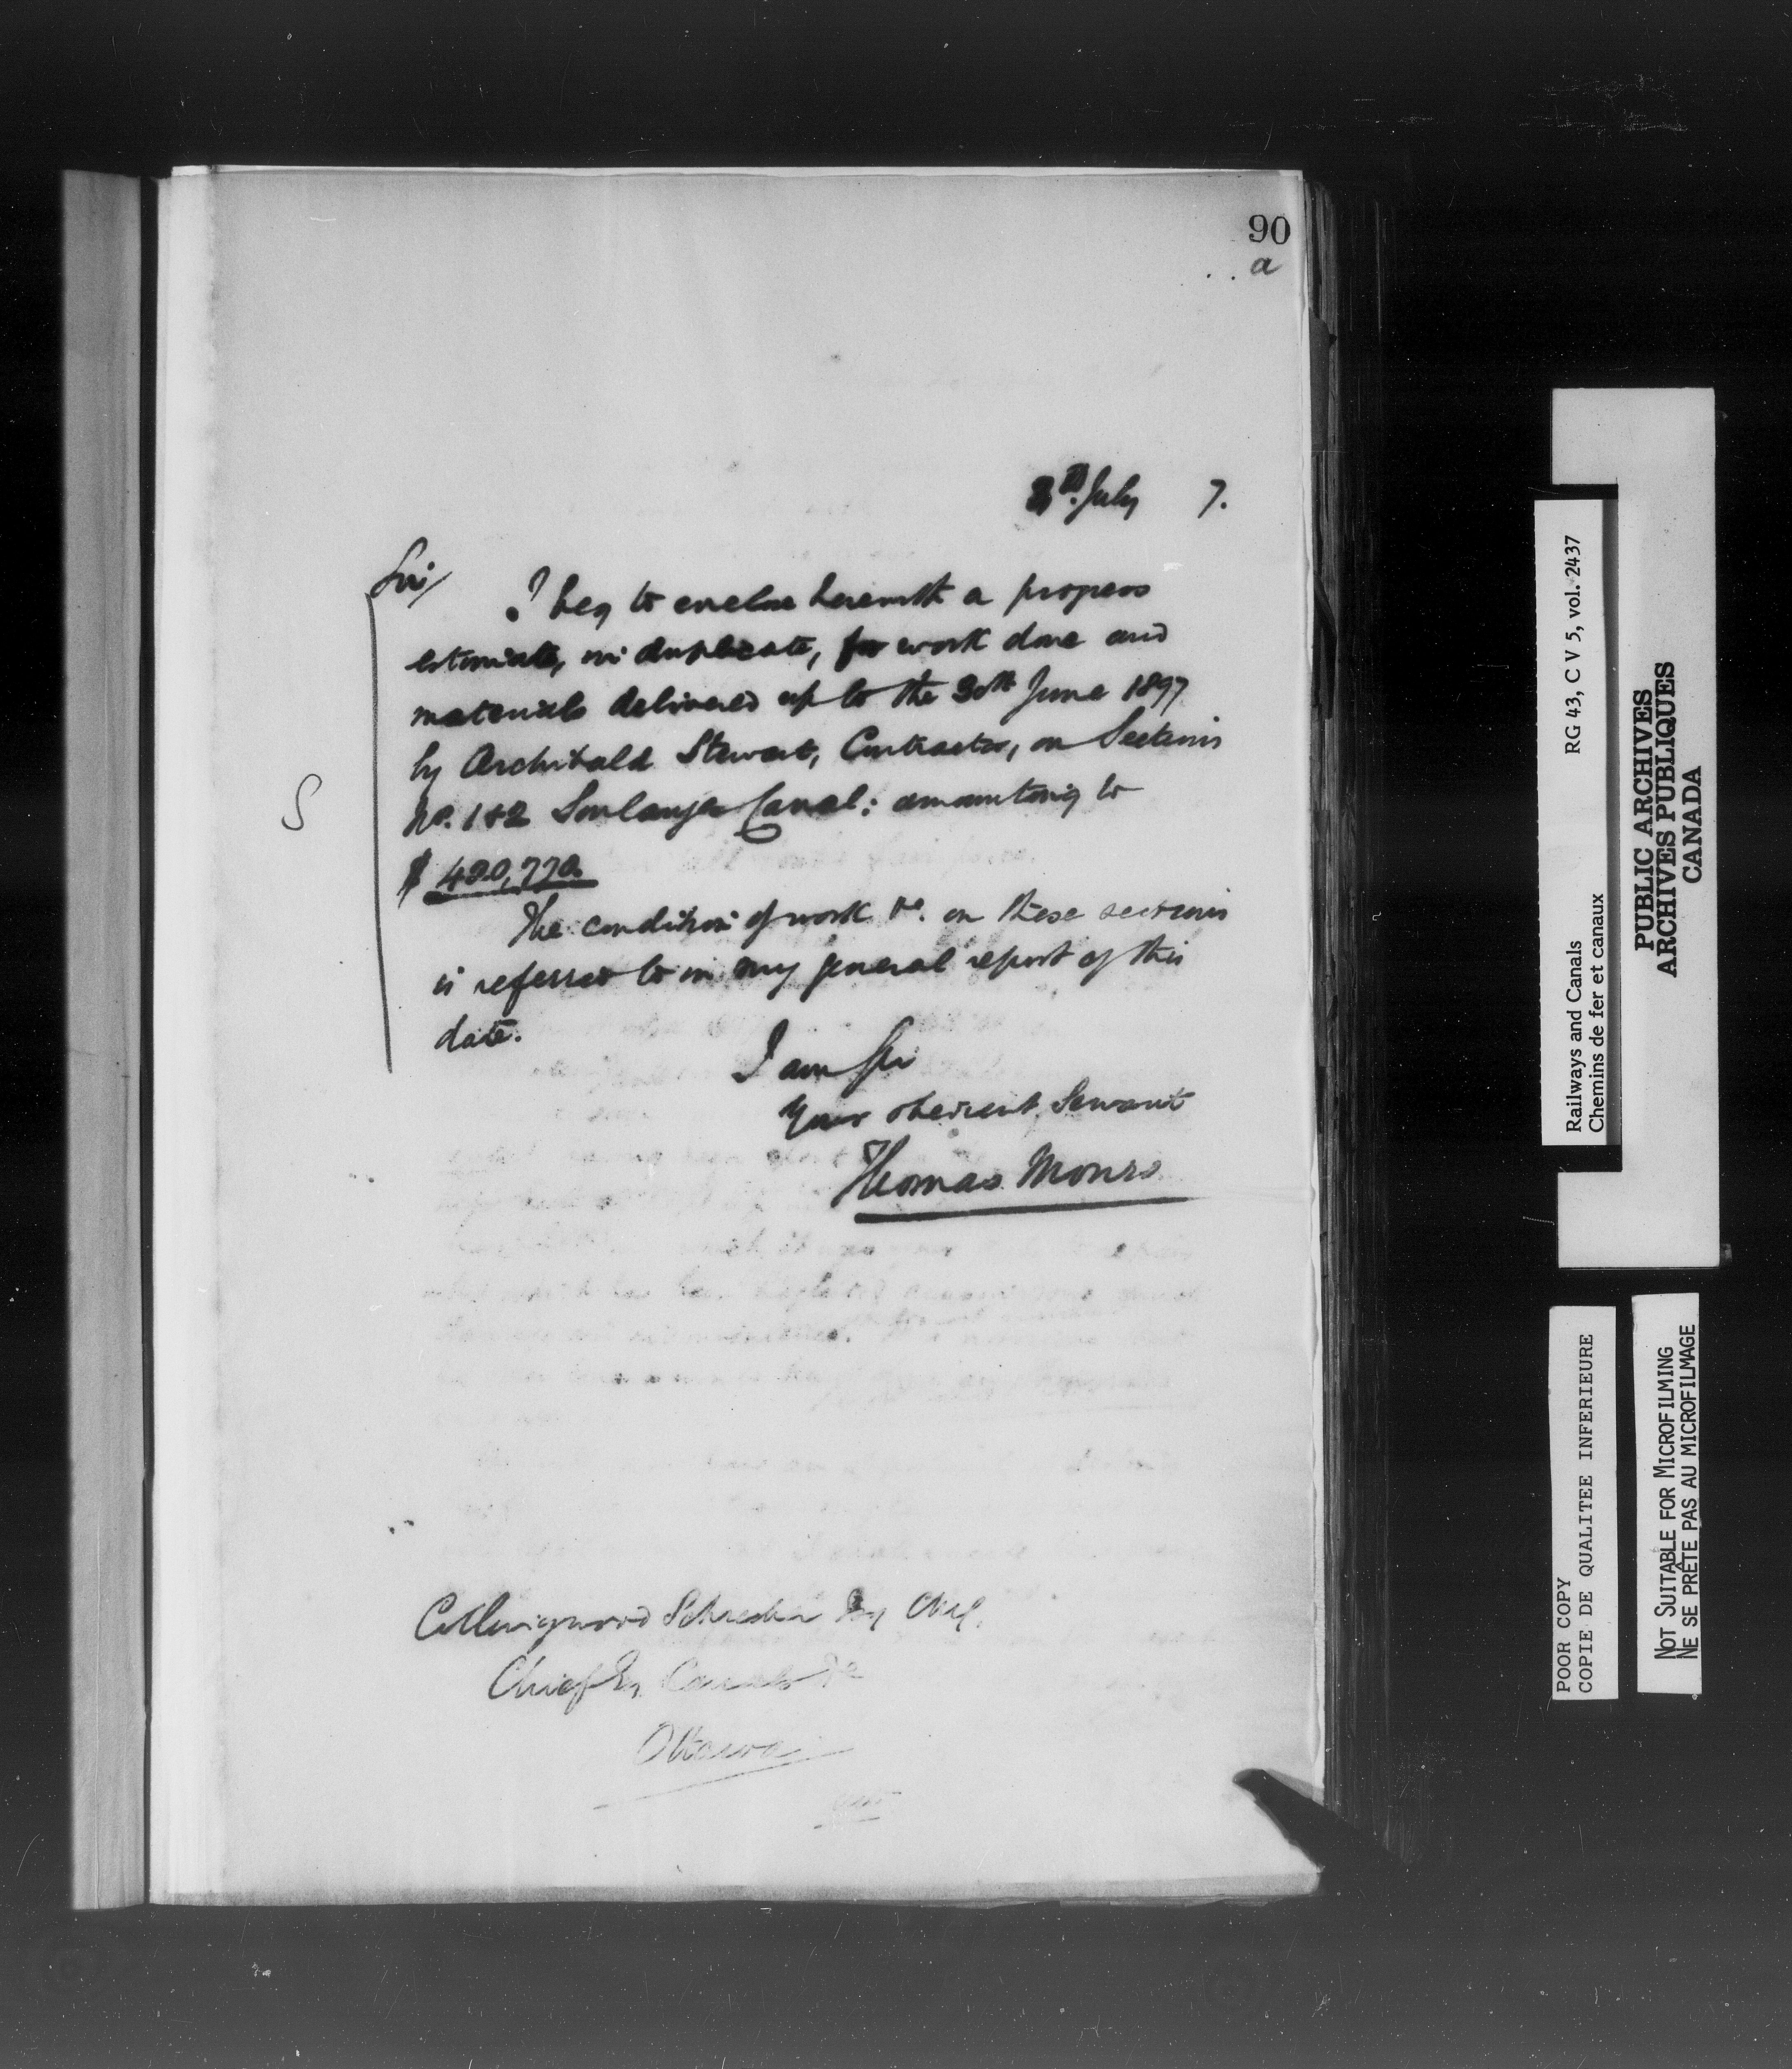 90
a
8th July 7.
Sir/
I beg to enclose herewith a progress
estimate, in duplicate, for work done and
materials delivered up to the 30th June 1897
by Archibald Stewart, Contractor, on Sections
No. 1 & 2 Soulanges Canal: amounting to
S
$ 420,770.
The condition of work &c. on these sections
is referred to in my general report of this
date.
I am Sir
Your obedient Servant
Thomas Monro
Collingwood Schreiber Esq CMG.
Chief En. Canals &c
Ottawa
RG 43, C V 5, vol. 2437
Railways and Canals
Chemins de fer et canaux
PUBLIC ARCHIVES
ARCHIVES PUBLIQUES
CANADA
POOR COPY
COPIE DE QUALITEE INFERIEURE
NOT SUITABLE FOR MICROFILMING
NE SE PRÊTE PAS AU MICROFILMAGE